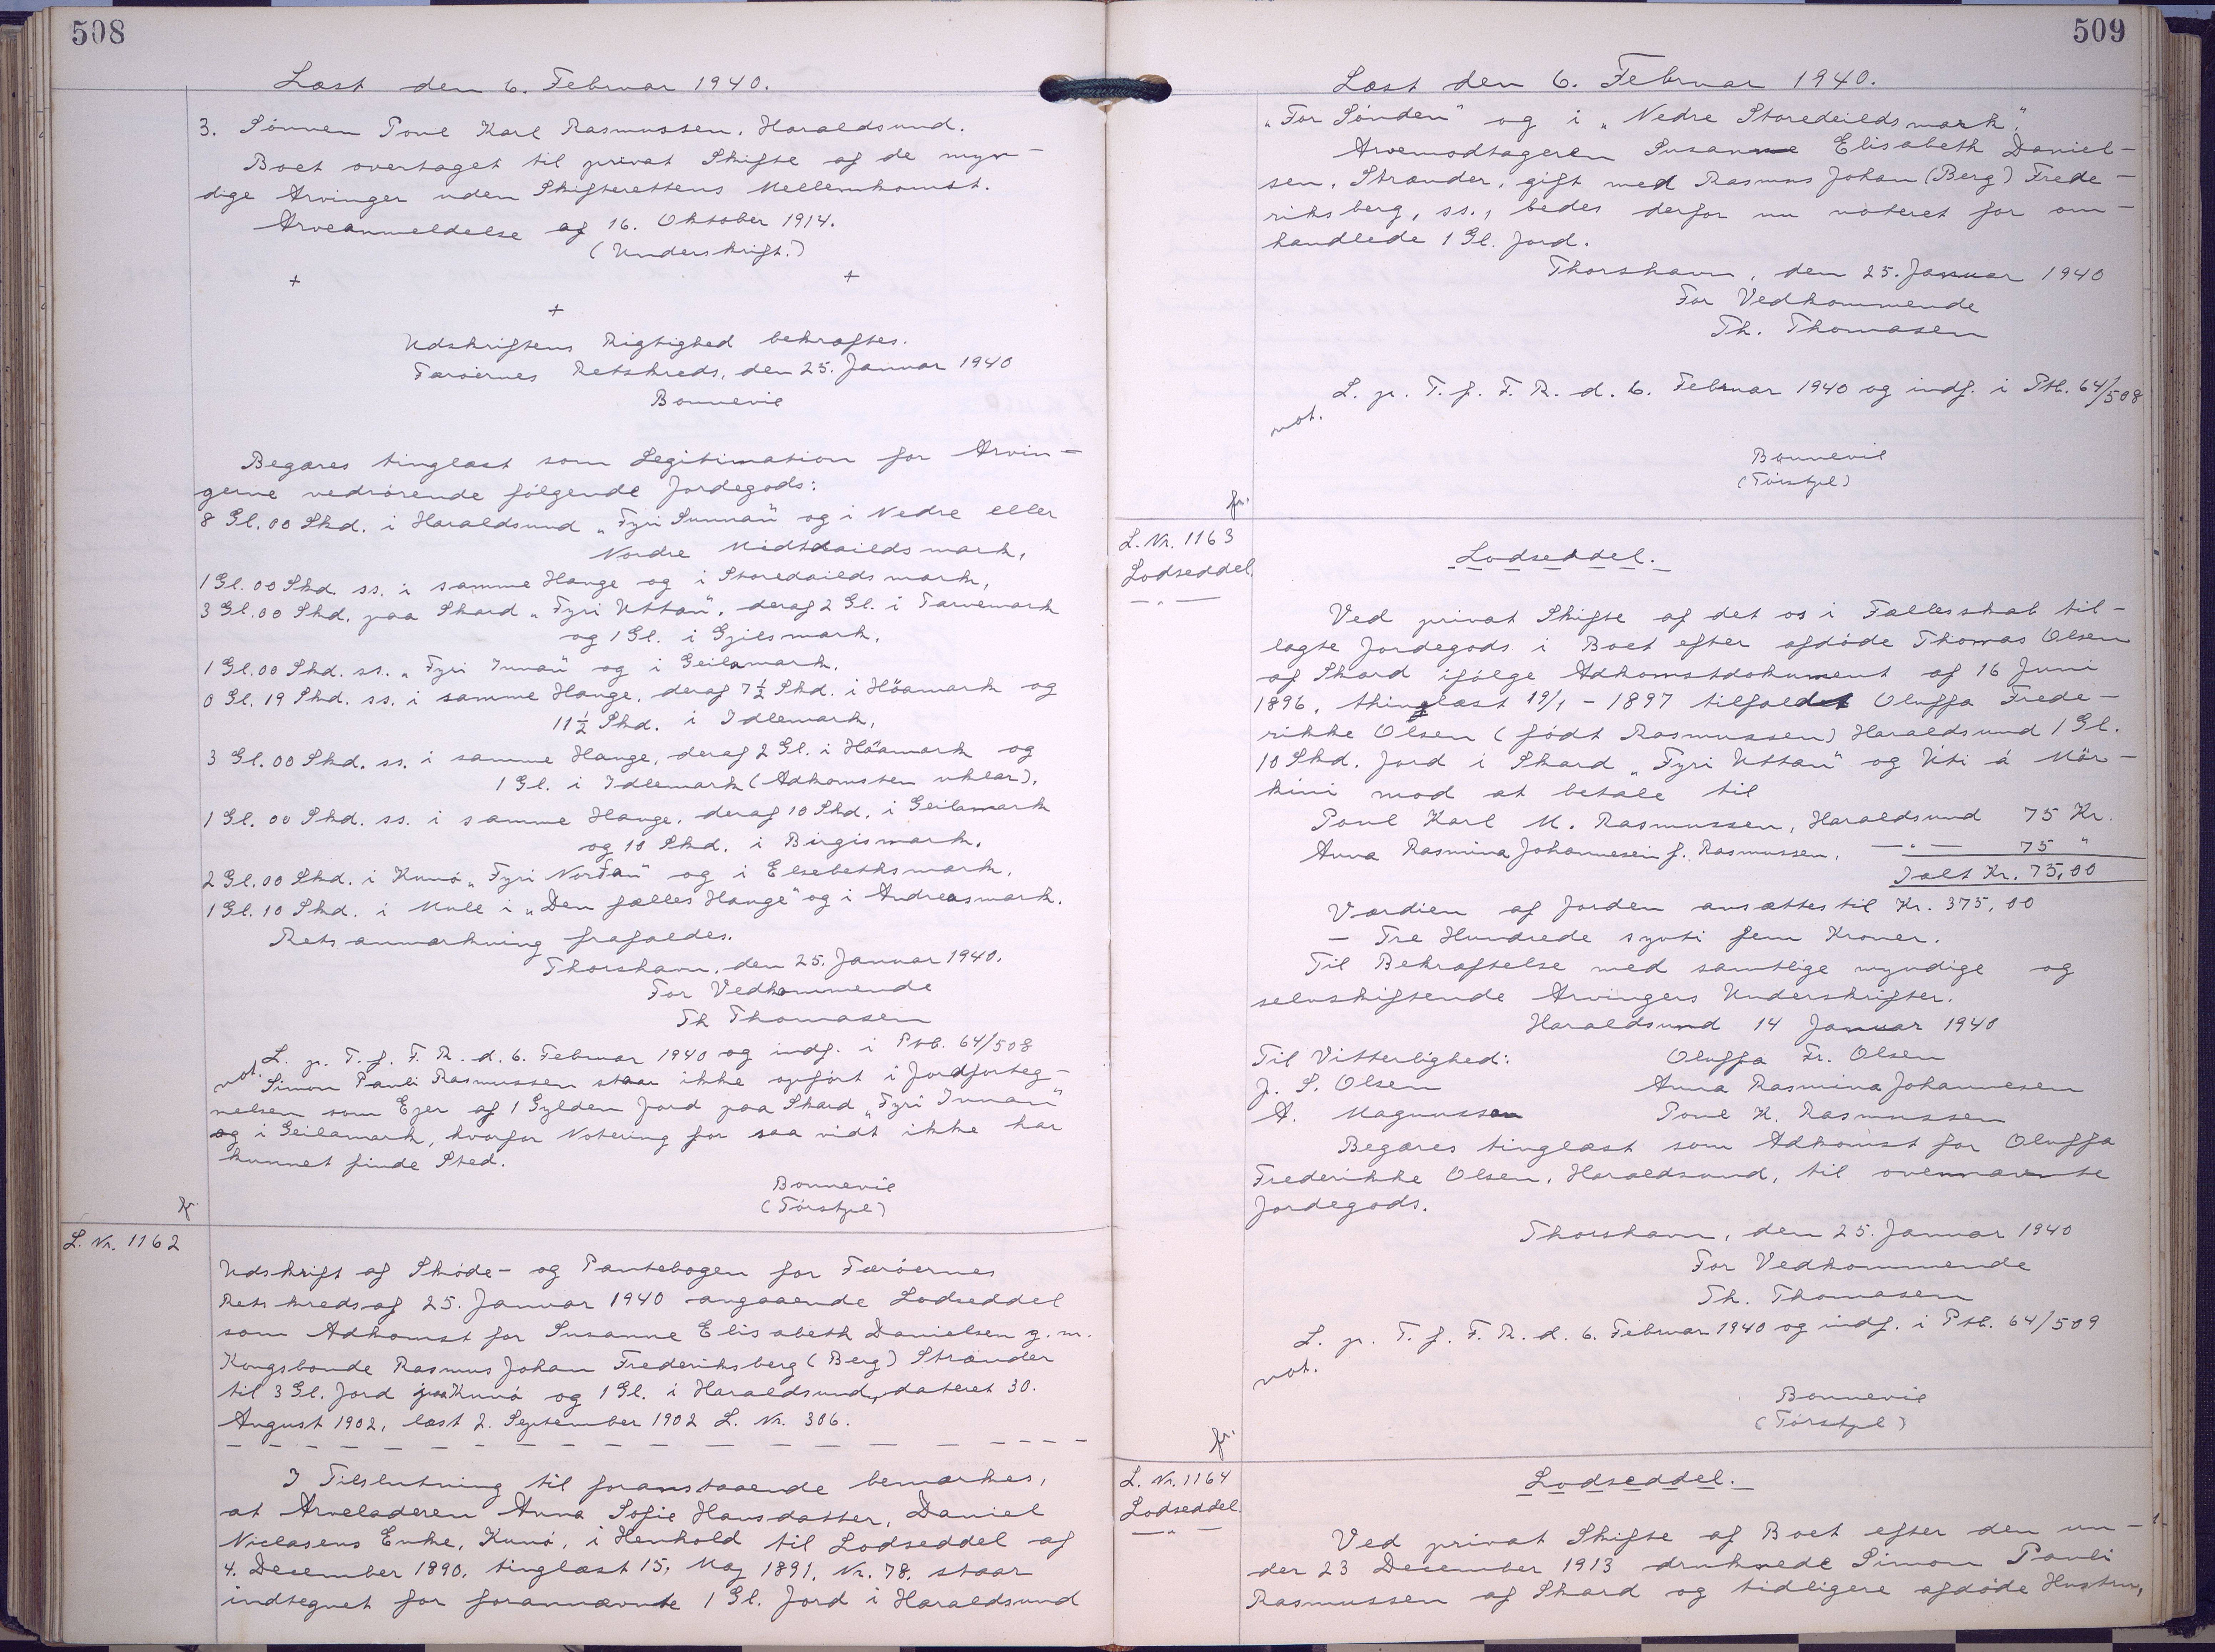 508
Læst den 6. Februar 1940.
3. Sønnen Poul Karl Rasmussen, Haraldsund.
Boet overtaget til privat Skifte af de myn-
dige Arvinger uden Skifterettens Mellemkomst.
Arveanmeldelse af 16. Oktober 1914.
(Underskrift.)
+ +
+
Udskriftens Rigtighed bekræftes.
Færøernes Retskreds, den 25. Januar 1940
Bonnevie
Begæres tinglæst som Legitimation for Arvin-
gerne vedrørende følgende Jordegods:
8 Gl. 00 Skd. i Haraldsund "Fyri Sunnan" og i Nedre eller
Nordre Midtdailds mark,
1 Gl. 00 Skd. ss. i samme Hauge og i Storedailds mark,
3 Gl. 00 Skd. paa Skard "Fyri Uttan", deraf 2 Gl. i Tarvemark
og 1 Gl. i Gjilsmark,
1 Gl. 00 Skd. ss. "Fyri Innan" og i Geilamark,
0 Gl. 19 Skd. ss. i samme Hauge, deraf 7½ Skd. i Höamark og
11½ Skd. i Idlemark,
3 Gl. 00 Skd. ss. i samme Hauge, deraf 2 Gl. i Höamark og
1 Gl. i Idlemark (Adkomsten uklar),
1 Gl. 00 Skd. ss. i samme Hauge, deraf 10 Skd. i Geilamark
og 10 Skd. i Birgismark,
2 Gl. 00 Skd. i Kunø "Fyri Norðan" og i Elsebethsmark,
1 Gl. 10 Skd. i Mule i "Den fælles Hauge" og i Andreasmark.
Rets anmærkning frafaldes.
Thorshavn, den 25. Januar 1940.
For Vedkommende
Th Thomasen
L. p. T. f. F. R. d. 6. Februar 1940 og indf. i Ptb. 64/508
not. Simon Pauli Rasmussen staar ikke opført i Jordforteg-
nelsen som Ejer af 1 Gylden Jord paa Skard "Fyri Innan"
og i Geilamark, hvorfor Notering for saa vidt ikke har
kunnet finde Sted.
Bonnevie
(Tórstpl)
L. Nr. 1162
Udskrift af Skøde- og Pantebogen for Færøernes
Retskreds af 25. Januar 1940 angaaende Lodseddel
som Adkomst for Susanne Elisabeth Danielsen g. m.
Kongsbonde Rasmus Johan Frederiksberg (Berg) Strænder
til 3 Gl. Jord paa Kunø og 1 Gl. i Haraldsund, dateret 30.
August 1902, læst 2. September 1902 L. Nr. 306.
I Tilslutning til foranstaaende bemærkes,
at Arveladeren Anna Sofie Hansdatter, Daniel
Niclasens Enke, Kunø, i Henhold til Lodseddel af
4. December 1890, tinglæst 15. Maj 1891, Nr. 78, staar
indtegnet for forannævnte 1 Gl. Jord i Haraldsund
509
Læst den 6. Februar 1940.
"For Sønden" og i "Nedre Storedeilds mark".
Arvemodtageren Susanne Elisabeth Daniel-
sen, Strænder, gift med Rasmus Johan (Berg) Frede-
riksberg, ss., bedes derfor nu noteret for om-
handlede 1 Gl. Jord.
Thorshavn, den 25. Januar 1940
For Vedkommende
Th. Thomasen
L. p. T. f. F. R. d. 6. Februar 1940 og indf. i Ptb. 64/508
not.
Bonnevie
(Tórstpl)
fr.
L. Nr. 1163
Lodseddel.
Lodseddel.
Ved privat Skifte af det os i Fællesskab til-
lagte Jordegods i Boet efter afdøde Thomas Olsen
af Skard ifølge Adkomstdokument af 16 Juni
1896, thinglæst 19/1 - 1897 tilfaldet Oluffa Frede-
rikke Olsen (født Rasmussen) Haraldsund 1 Gl.
10 Skd. Jord i Skard "Fyri Uttan" og Úti á Mör-
kini mod at betale til
Poul Karl M. Rasmussen, Haraldsund 75 Kr.
Anna Rasmina Johannesen f. Rasmussen, — " — 75 "
Ialt Kr. 75,00
Værdien af Jorden ansættes til Kr. 375,00
— Tre Hundrede syvti fem Kroner.
Til Bekræftelse med samtlige myndige og
selvskiftende Arvingers Underskrifter.
Haraldsund 14 Januar 1940
Til Vitterlighed: Oluffa Fr. Olsen
J. S. Olsen Anna Rasmina Johannesen
A. Magnussen Poul K. Rasmussen
Begæres tinglæst som Adkomst for Oluffa
Frederikke Olsen, Haraldsund, til ovennævnte
Jordegods.
Thorshavn, den 25. Januar 1940
For Vedkommende
Th. Thomasen
L. p. T. f. F. R. d. 6. Februar 1940 og indf. i Ptb. 64/509
not.
Bonnevie
(Tórstpl)
fr.
L. Nr. 1164
Lodseddel.
Lodseddel.
Ved privat Skifte af Boet efter den un-
der 23 December 1913 druknede Simon Pauli
Rasmussen af Skard og tidligere afdøde Hustru,